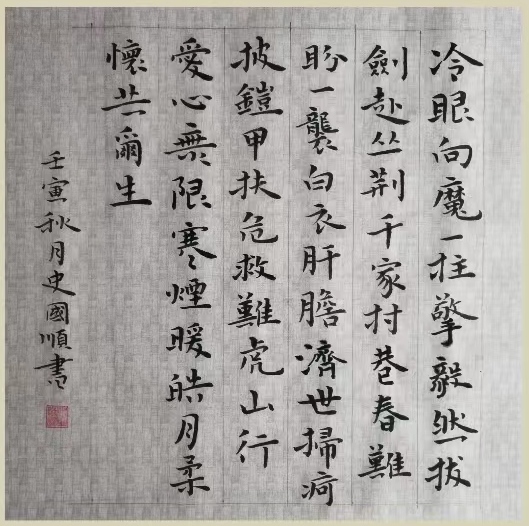 冷眼向魔一柱擎毅然拔
劍赴丛荆千家村巷春難
盼一襲白衣肝膽濟世掃疴
披鎧甲扶危救難虎山行
愛心無限寒煙暖皓月柔
懷芸爾生
壬寅秋月史國順書